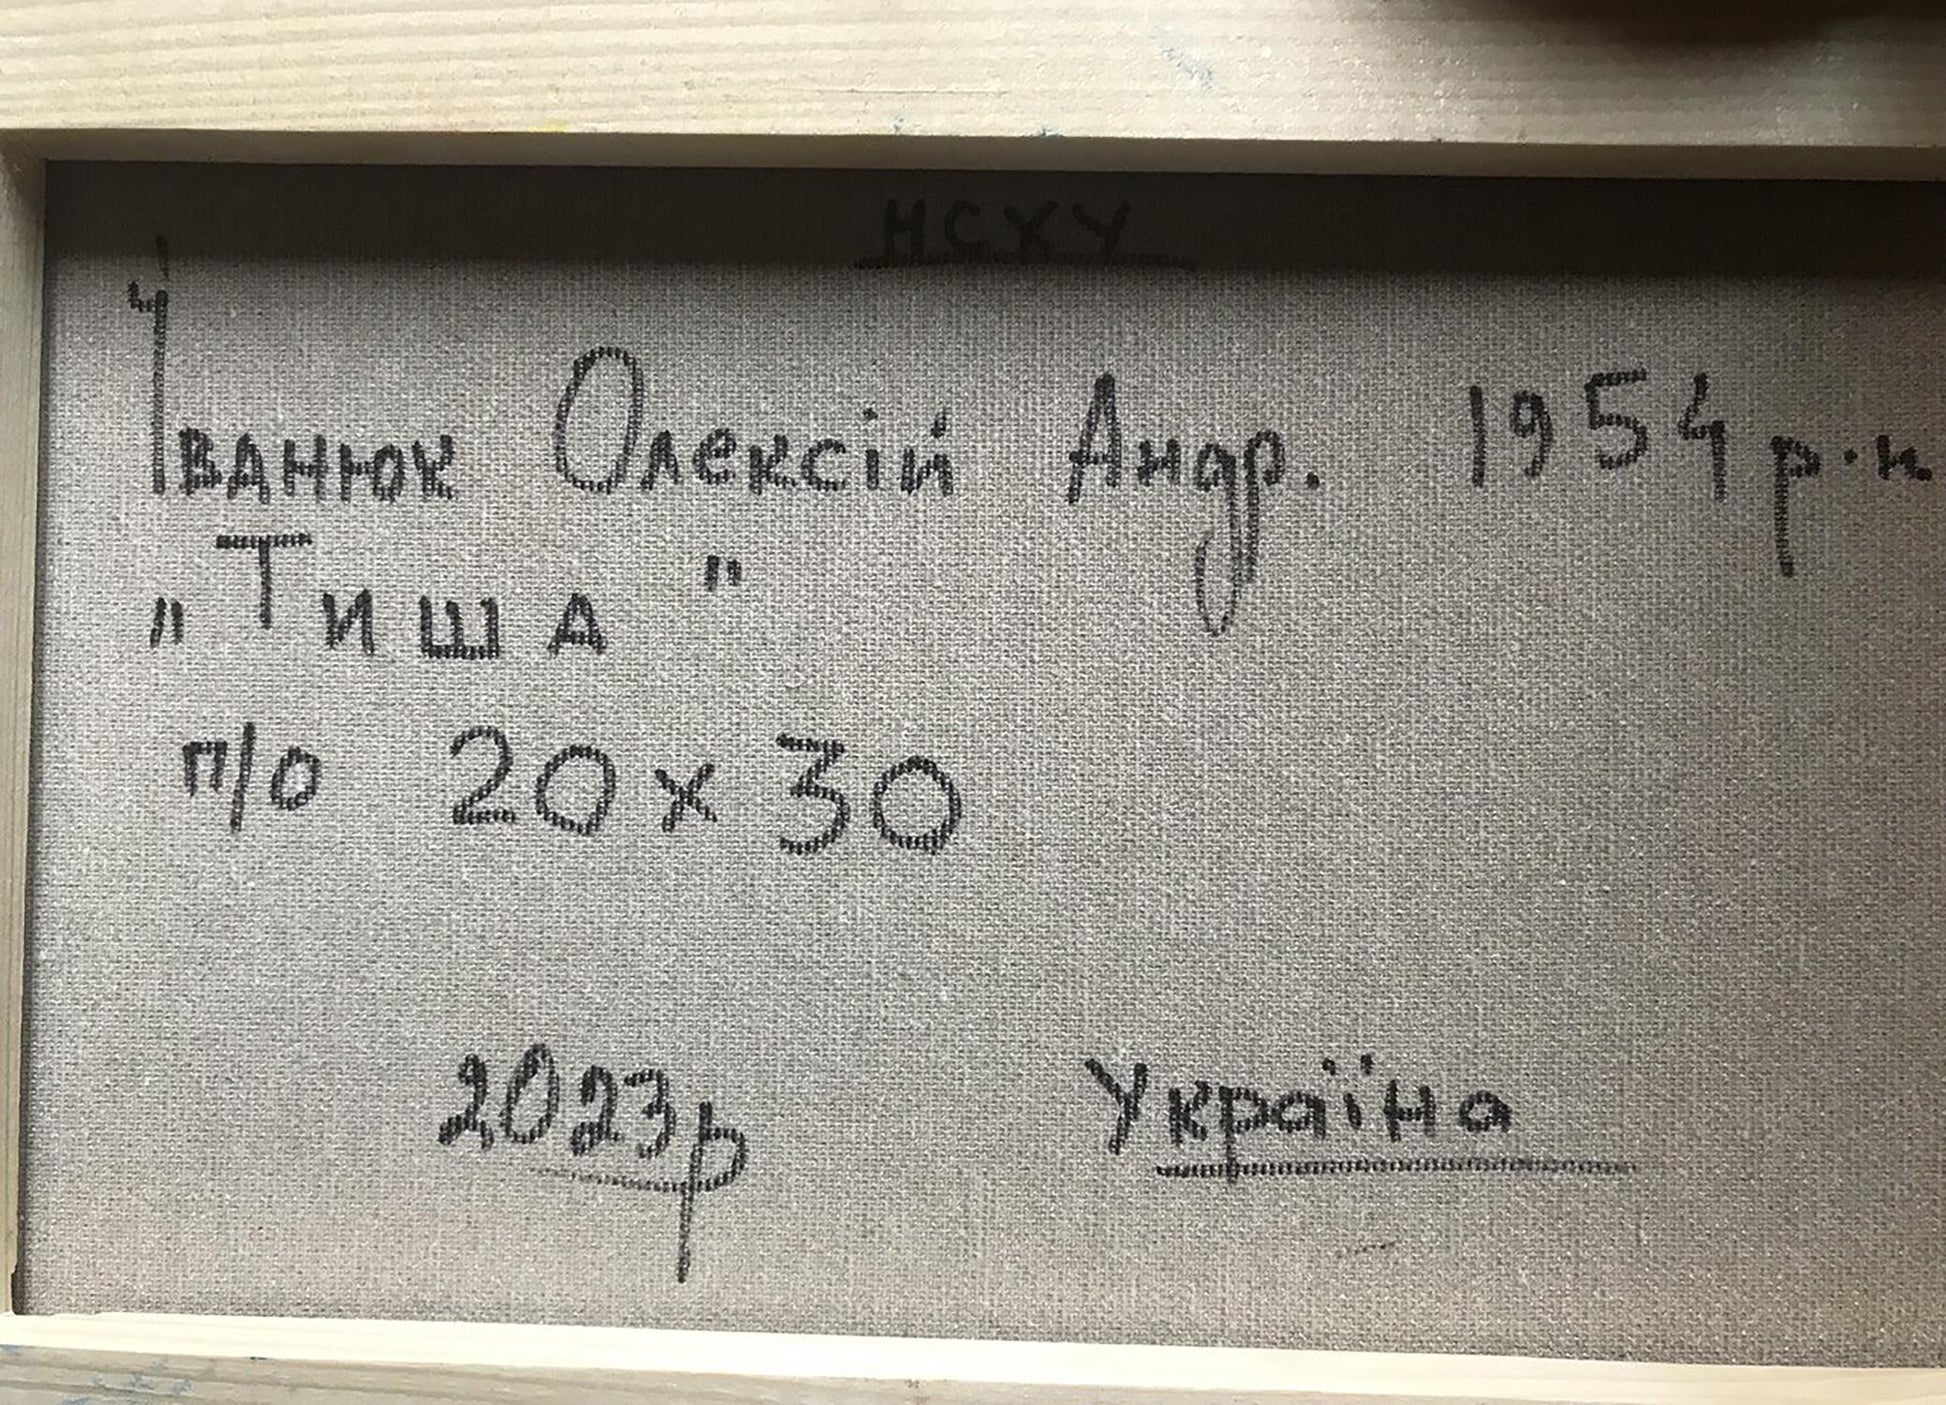 НСХУ
Іванюк Олексій Андр. 1954 р.н
„Тиша"
п/о 20 х 30
2023р Україна